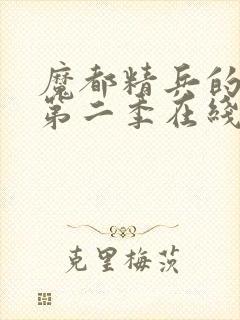 魔都精兵的
第二季在线
克里梅茨